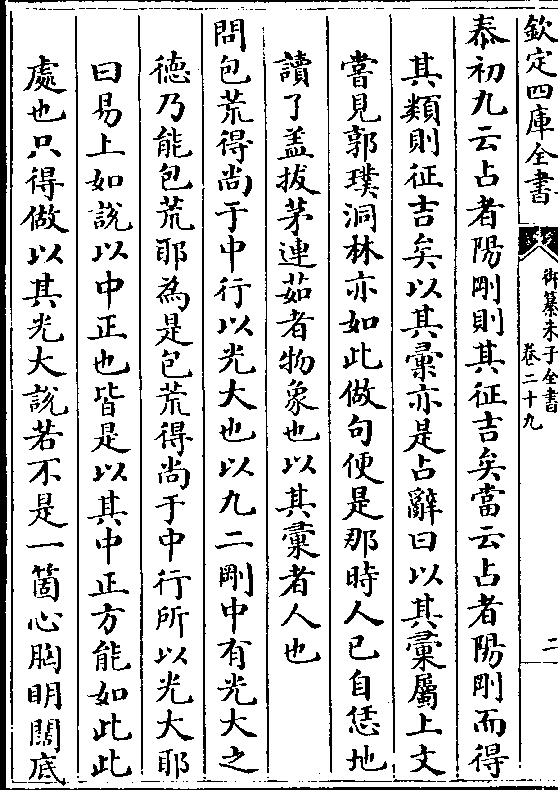 欽定四庫全書
御纂朱子全書
卷二十九
二
泰初九云占者陽剛則其征吉矣當云占者陽剛而得
其類則征吉矣以其彚亦是占辭曰以其彚屬上文
嘗見郭璞洞林亦如此做句便是那時人已自恁地
讀了盖拔茅連茹者物象也以其彚者人也
問包荒得尚于中行以光大也以九二剛中有光大之
德乃能包荒耶為是包荒得尚于中行所以光大耶
曰易上如說以中正也皆是以其中正方能如此此
處也只得做以其光大說若不是一箇心胸明闊底